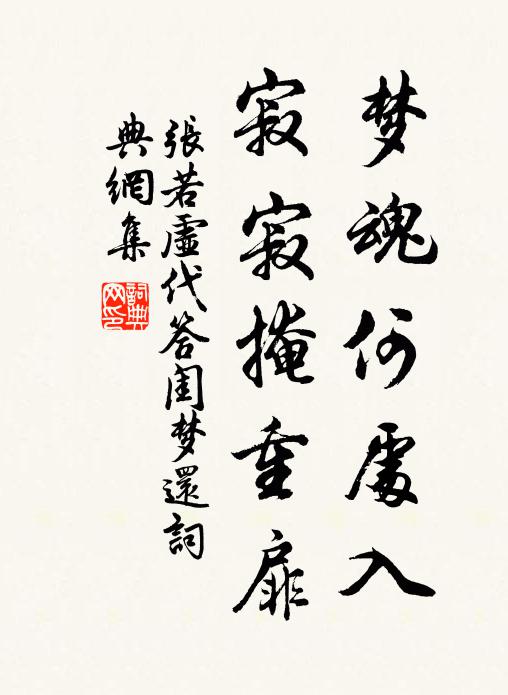 梦魂何處入
寂寂掩重扉
張若虛代答闺梦還詞
典網集
詞典網印